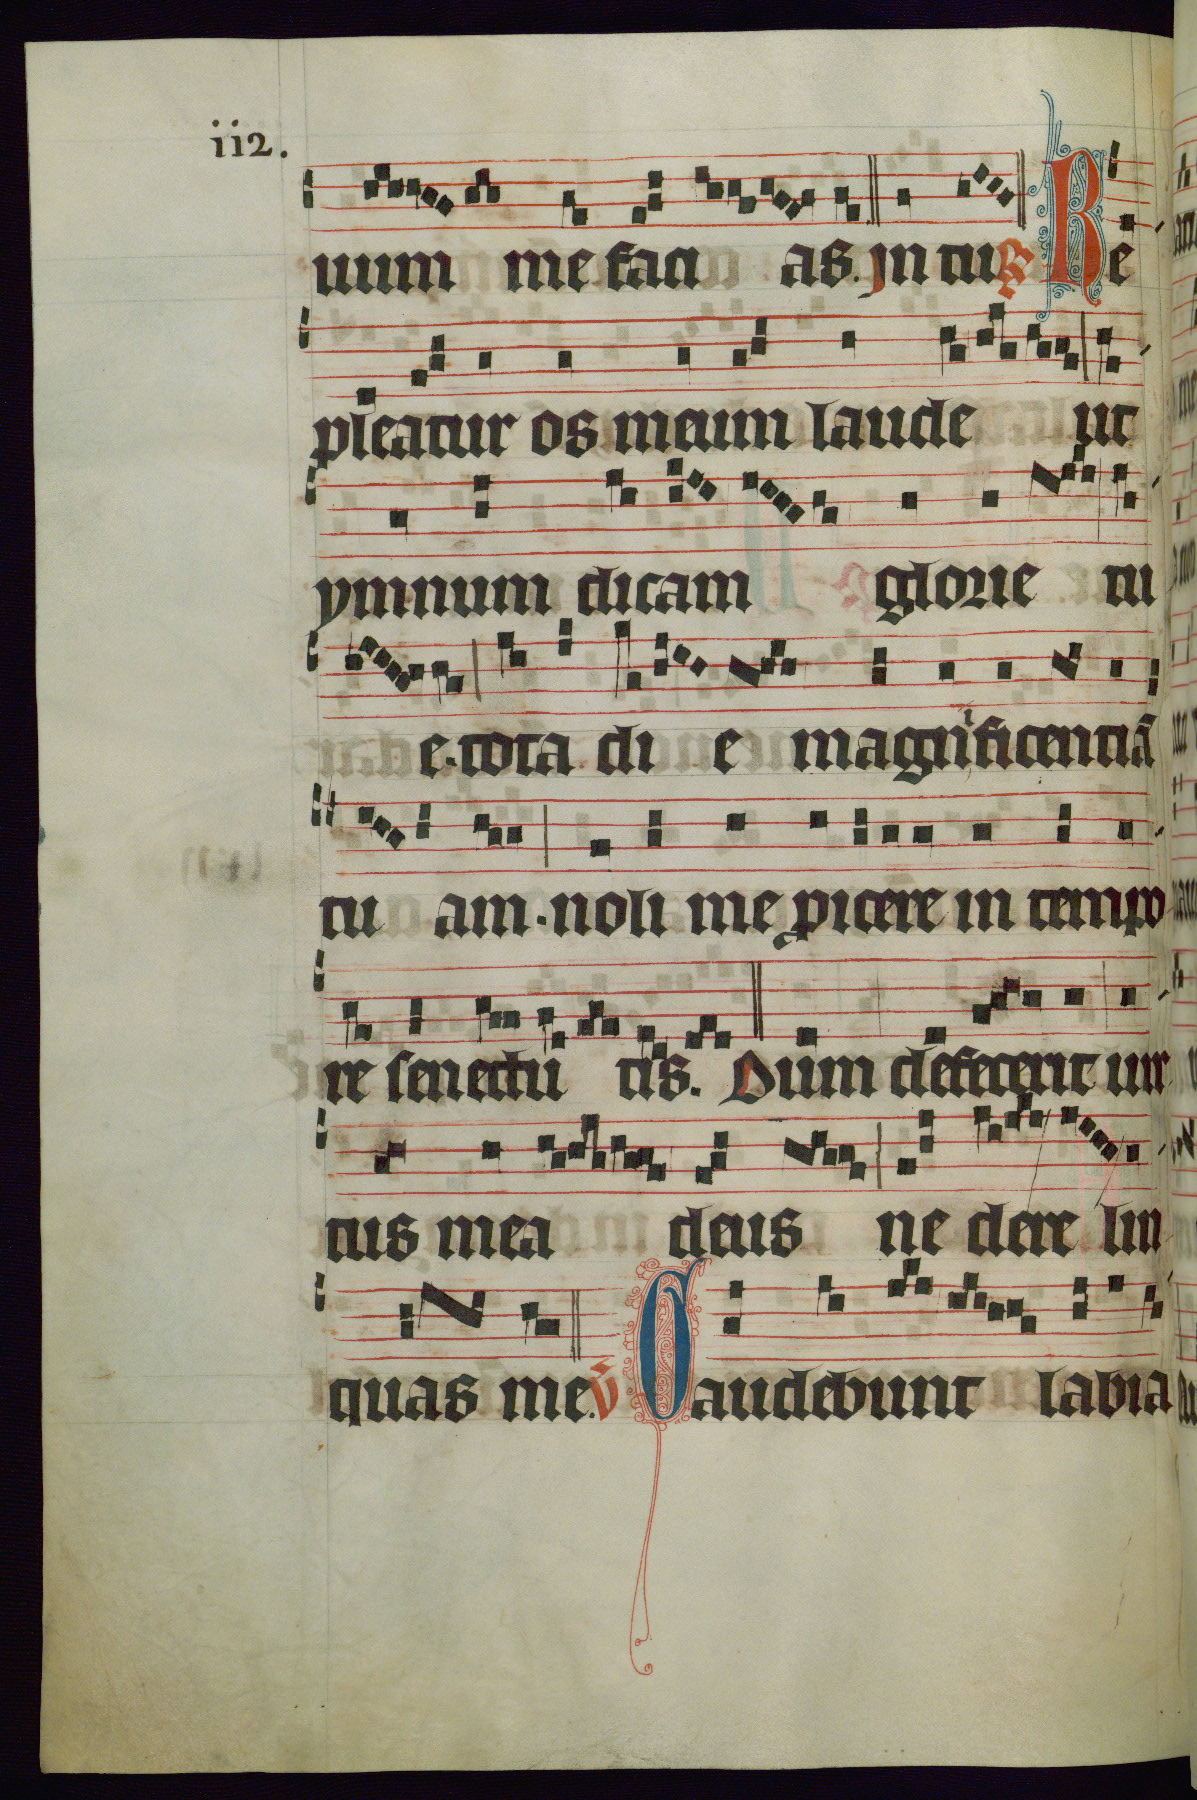 ii2.
uum me faci as. In tu R Re
pleatur os meum laude ut
ymnum dicam glorie tu
e. tota di e magnificentiā
tu am. noli me ꝓicere in tempo
re senectu tis. Dum defecerit uir
tus mea deus ne dere lin
quas me. V Gaudebunt labia